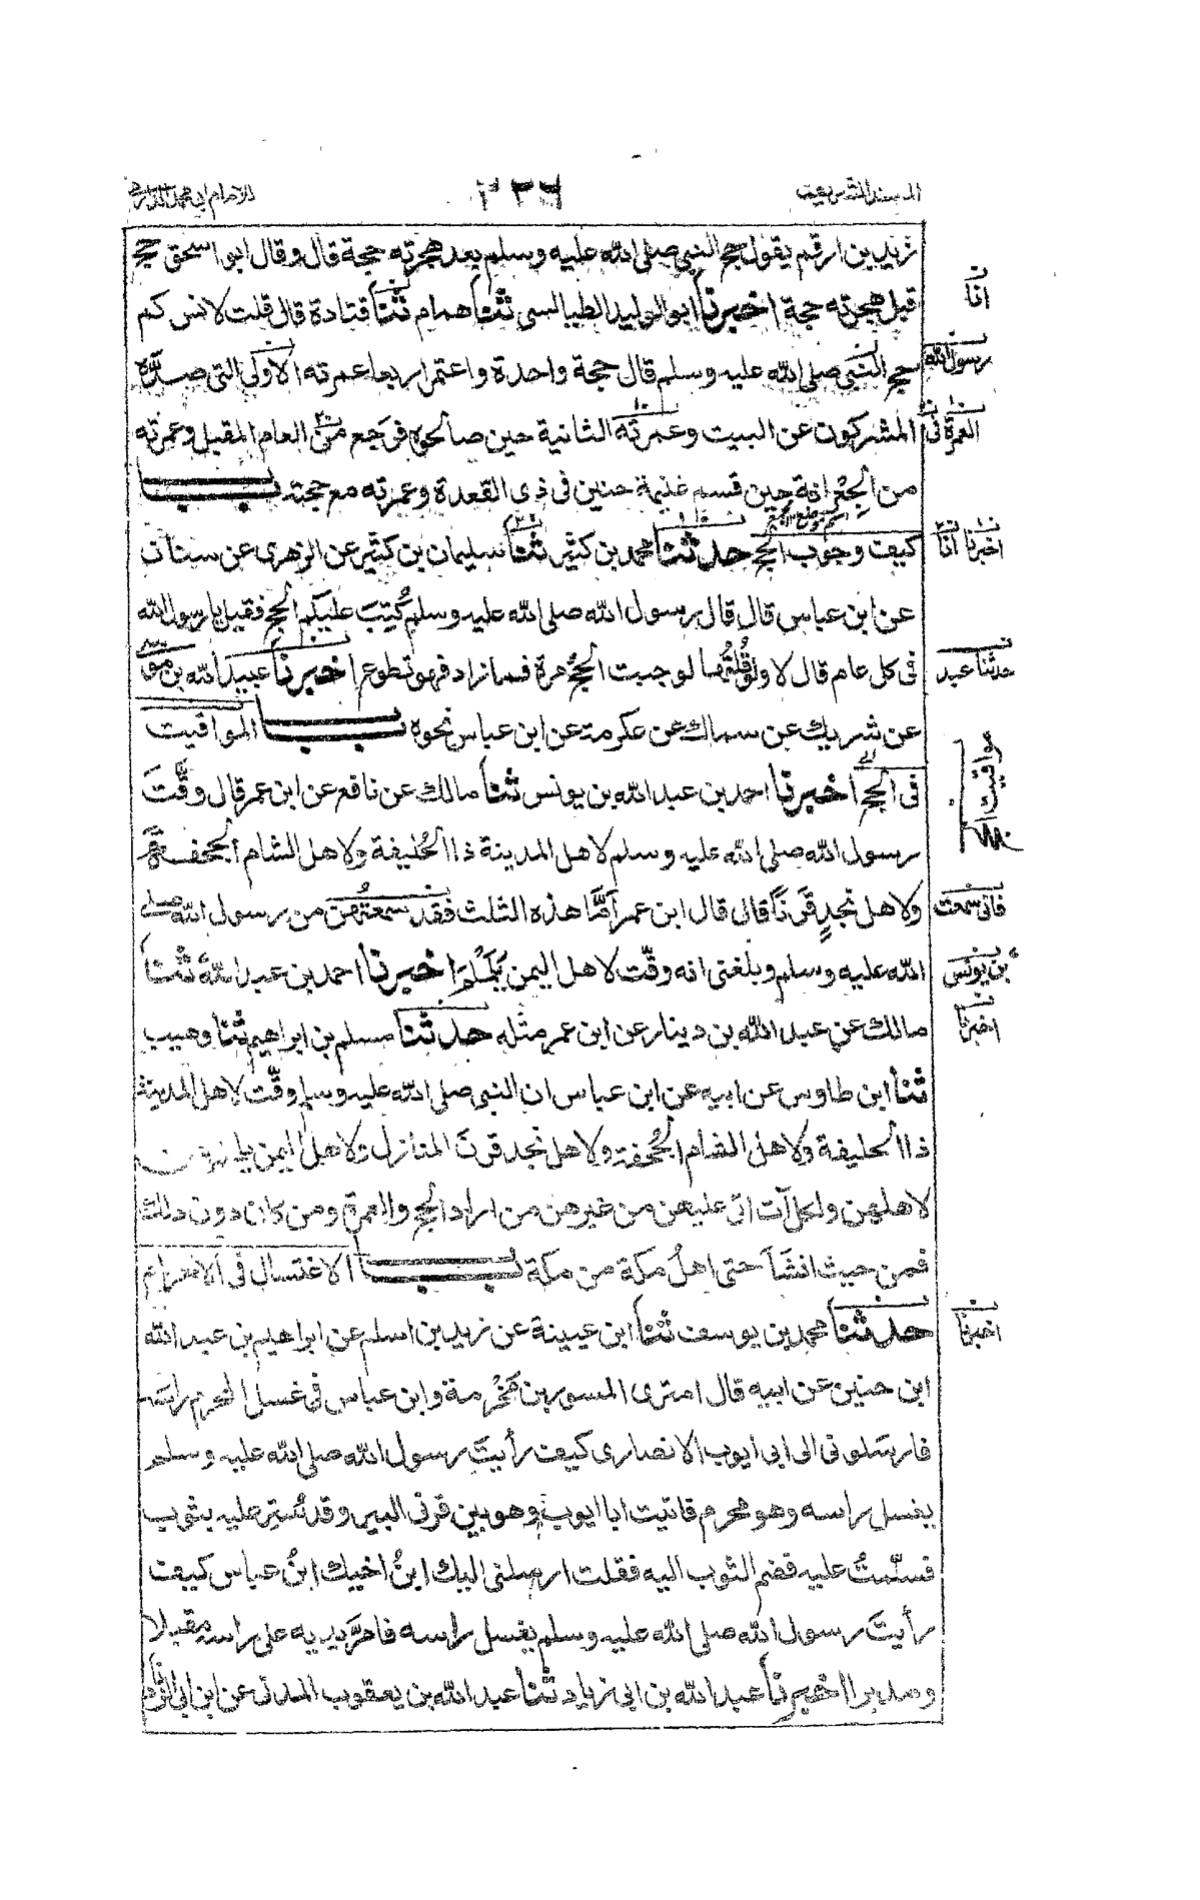 المسند الشريف
٢٣٦
للامام ابى محمد الدارمى
زيد بن ارقم يقول حج النبى صلى الله عليه وسلم بعد هجرته حجة قال وقال ابو اسحق حج
قبل هجرته حجة اخبرنا ابو الوليد الطيالسى ثنا همام ثنا قتادة قال قلت لانس كم
حج النبى صلى الله عليه وسلم قال حجة واحدة واعتمر اربعا عمرته الاولى التى صدّه
المشركون عن البيت وعمرته الثانية حين صالحوه فرجع من العام المقبل وعمرته
من الجِعْرانة حين قسم غنيمة حنين فى ذى القعدة وعمرته مع حجته باب
كيف وجوب الحج حدثنا محمد بن كثير ثنا سليمان بن كثير عن الزهرى عن سنان
عن ابن عباس قال قال رسول الله صلى الله عليه وسلم كُتِبَ عليكم الحج فقيل يا رسول الله
فى كل عام قال لا ولو قُلتُها لوجبت الحجُّ مرة فما زاد فهو تطوع اخبرنا عبيد الله بن موسى
عن شريك عن سماك عن عكرمة عن ابن عباس نحوه باب المواقيت
فى الحج اخبرنا احمد بن عبد الله بن يونس ثنا مالك عن نافع عن ابن عمر قال وقَّتَ
رسول الله صلى الله عليه وسلم لاهل المدينة ذا الحُليفة ولاهل الشام الجحفة
ولاهل نجدٍ قَرنًا قال قال ابن عمر اَمَّا هذه الثلث فقد سمعتُهن من رسول الله صلى
الله عليه وسلم وبلغنى انه وقّت لاهل اليمن يَلَمْلَمَ اخبرنا احمد بن عبد الله ثنا
مالك عن عبد الله بن دينار عن ابن عمر مثله حدثنا مسلم بن ابراهيم ثنا وهيب
ثنا ابن طاوس عن ابيه عن ابن عباس ان النبى صلى الله عليه وسلم وقّت لاهل المدينة
ذا الحليفة ولاهل الشام الجُحفة ولاهل نجد قرنَ المنازل ولاهل اليمن
لاهلهن ولكل آت اتى عليهن من غيرهن من اراد الحج والعمرة ومن كان دون ذلك
فمن حيث انشَأَ حتى اهلُ مكة من مكة باب الاغتسال فى الاحرام
حدثنا محمد بن يوسف ثنا ابن عيينة عن زيد بن اسلم عن ابراهيم بن عبد الله
ابن حنين عن ابيه قال امترى المسور بن مَخْرمة وابن عباس فى غسل المحرم راسَه
فارسلونى الى ابى ايوب الانصارى كيف رأيتَ رسول الله صلى الله عليه وسلم
يغسل راسه وهو محرم فاتيت ابا ايوب وهو بين قرنى البير وقد سُتِر عليه بثوب
فسلّمتُ عليه فضم الثوب اليه فقلت ارسلنى اليك ابنُ اخيك ابنُ عباس كيف
رأيتَ رسول الله صلى الله عليه وسلم يغسل راسه فامَرَّ يديه على راسه مقبلا
ومدبرا اخبرنا عبد الله بن ابى زياد ثنا عبد الله بن يعقوب المدنى عن ابن ابى الزناد
انا
رسول الله
العمرة فى
اخبرنا انا
حدثنا عبد
مواقيت
فانى سمعت
بن يونس
اخبرنا
اخبرنا